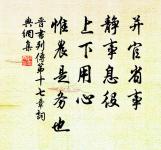 并官省事
静事息役
上下用心
惟農是务也
晋书列传第十七章词
典纲集